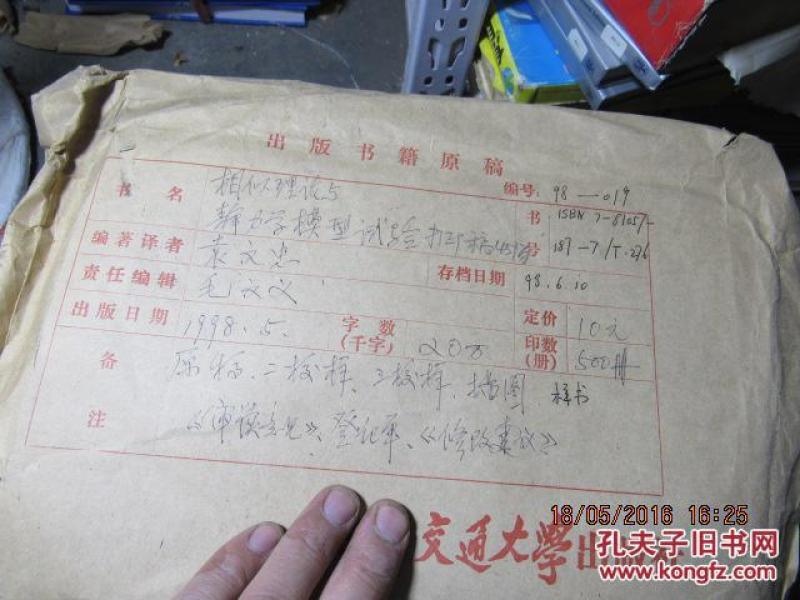 出版书籍原稿
编号: 98—019
书名 相似理论与
静力学模型试验
书号 ISBN 7-81057-
187-7/T·276
编著译者 袁文忠
存档日期 98.6.10
责任编辑
出版日期 1998.5.
字数(千字) 20万
定价 10元
印数(册) 500册
备注 原稿、二校样、三校样、插图 样书
《审读意见》、登记单、《修改建议》
18/05/2016 16:25
交通大學出版社
孔夫子旧书网
www.kongfz.com